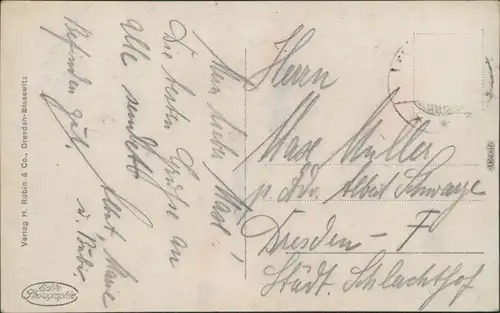 Mein lieber Max!
Die besten Grüße an
alle sendet
Befinden gut.
Albert, Marie
u. Bubi
Herrn
Max Müller
p. Adr. Albert Schwarze
Dresden - F
Städt. Schlachthof
Verlag H. Rubin & Co., Dresden-Blasewitz
Echte
Photographie